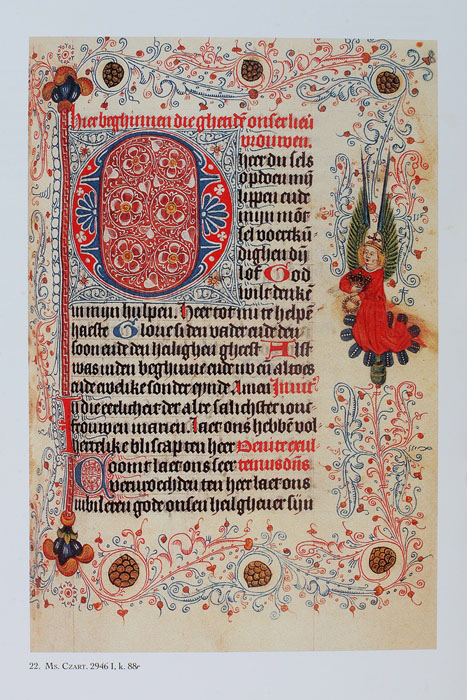 Hier beghinnen die ghetide onser lieu
vrouwen.
Heer du sels
opdoen mijn
lippen ende
mijn mōt
sel voertkū
dighen dij
lof God
wilt denkē
in mijn hulpen. Heer tot mi te helpē
haeste Glorie si den vader ende den
soon ende den heilighen gheest Alst
was in den beghinne ende nv en altoes
ende ewelike sonder eynde. Amen Inuit'
In die eerlicheit der alre salichster ionc
frouwen marien. Laet ons hebbē vol
hertelike bliscap ten heer Venite exul
Coomt laet ons seer temus dn̄s
vervroechden ten heer laet ons
iubileren gode onsen heilgheuer sijn
22. Ms. Czart. 2946 I, k. 88r